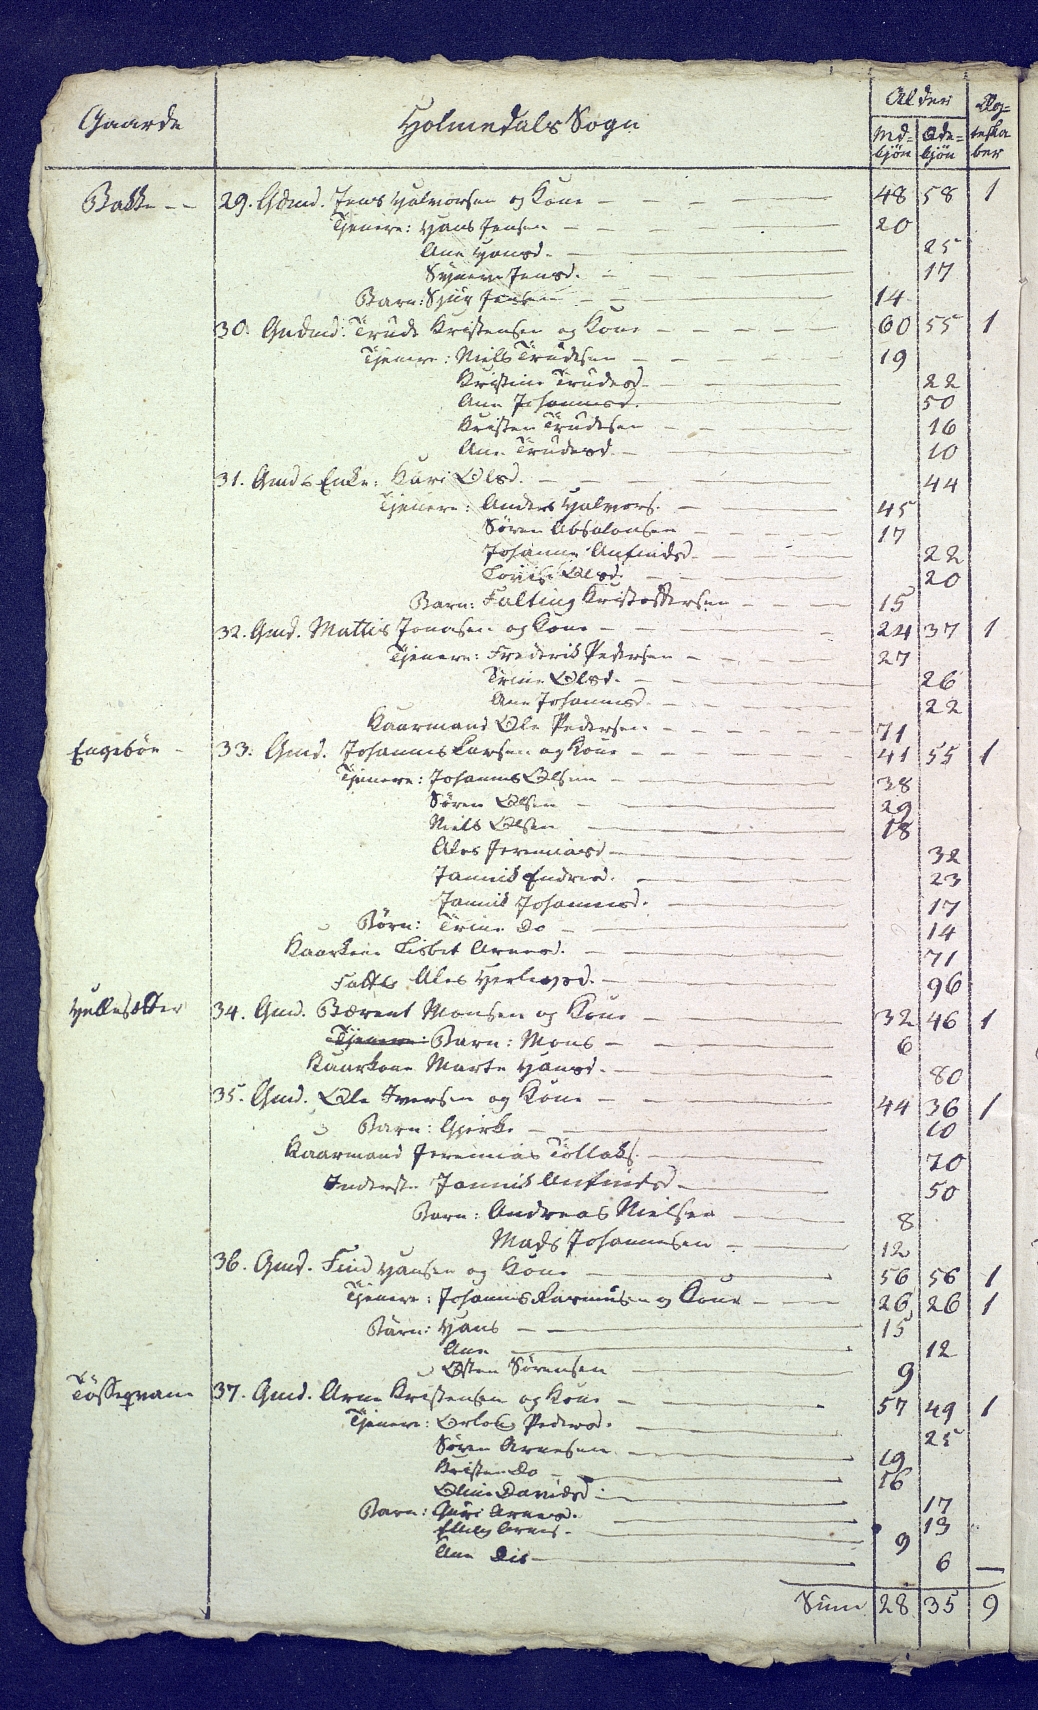 Gaarde Holmedals Sogn Alder Ægteskaber
Mdkjön Qdekjön
Bakke 29. Gdmd. Jens Halvorsen og Kone 48 58 1
Tjenere: Hans Jensen 20
Ane Hansd. 25
Jensd. 17
Barn: Sjur Jensen 14
30. Gudmd: Trude Kristensen og Kone 60 55 1
Tjenere: Niels Trudesen 19
Kristine Trudesd. 22
Ane Johannesd. 50
Kristen Trudesen 16
Ane Trudesd 10
31. Gmds Enke: Kari Olsd. 44
Tjenere: Anders Halvors. 45
Sören Absalonsen 17
Johanne Anfindsd. 22
Lovise Olsd. 20
Barn: Falting Kristoffersen 15
32. Gmd. Mattis Jonasen og Kone 24 37 1
Tjenere: Frederik Pedersen 27
Trine Olsd. 26
Ane Johannesd. 22
Kaarmand Ole Pedersen 71
Engebön 33. Gmd. Johannes Larsen og Kone 41 55 1
Tjenere: Johannes Olsen 38
Sören Olsen 29
Niels Olsen 18
Ales Jeremiasd 32
Jannik Endresd. 23
Jannik Johannesd. 17
Börn: Trine Do 14
Kaarkone Lisbet Arnesd. 71
Ales 96
34. Gmd. Bærent Monsen og Kone 32 46 1
Tjenere: Barn: Mons 6
Kaarkone Marte Hansd. 80
35. Gmd. Ole Iversen og Kone 44 36 1
Barn: Gjerke 10
Kaarmand Jeremias Tollaks. 70
Inderste Jannik Anfindsd. 50
Barn: Andreas Nielsen 8
Mads Johannesen 12
36. Gmd. Find Hansen og Kone 56 56 1
Tjenere: Johannes Rasmusen og Kone 26 26 1
Barn: Hans 15
Ane 12
Østen Sörensen 9
37. Gmd. Arne Kristensen og Kone 57 49 1
Tjenere: Pedersd. 25
Sören Arnesen 19
Kristen Do 16
Oline Davidsd. 17
Barn: Guri Arnesd. 13
Arnes. 9
Ane Do 6
Sum 28 35 9